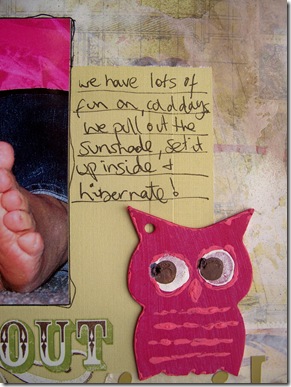 we have lots of
fun on, cold days
we pull out the
sunshade, set it
up inside &
hibernate!
OUT